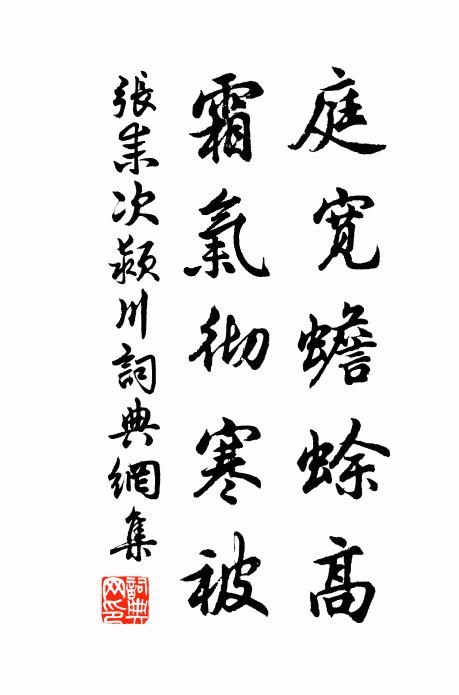 庭寬蟾蜍高
霜氣彻寒被
張耒次潁川詞典網集
詞典
网印